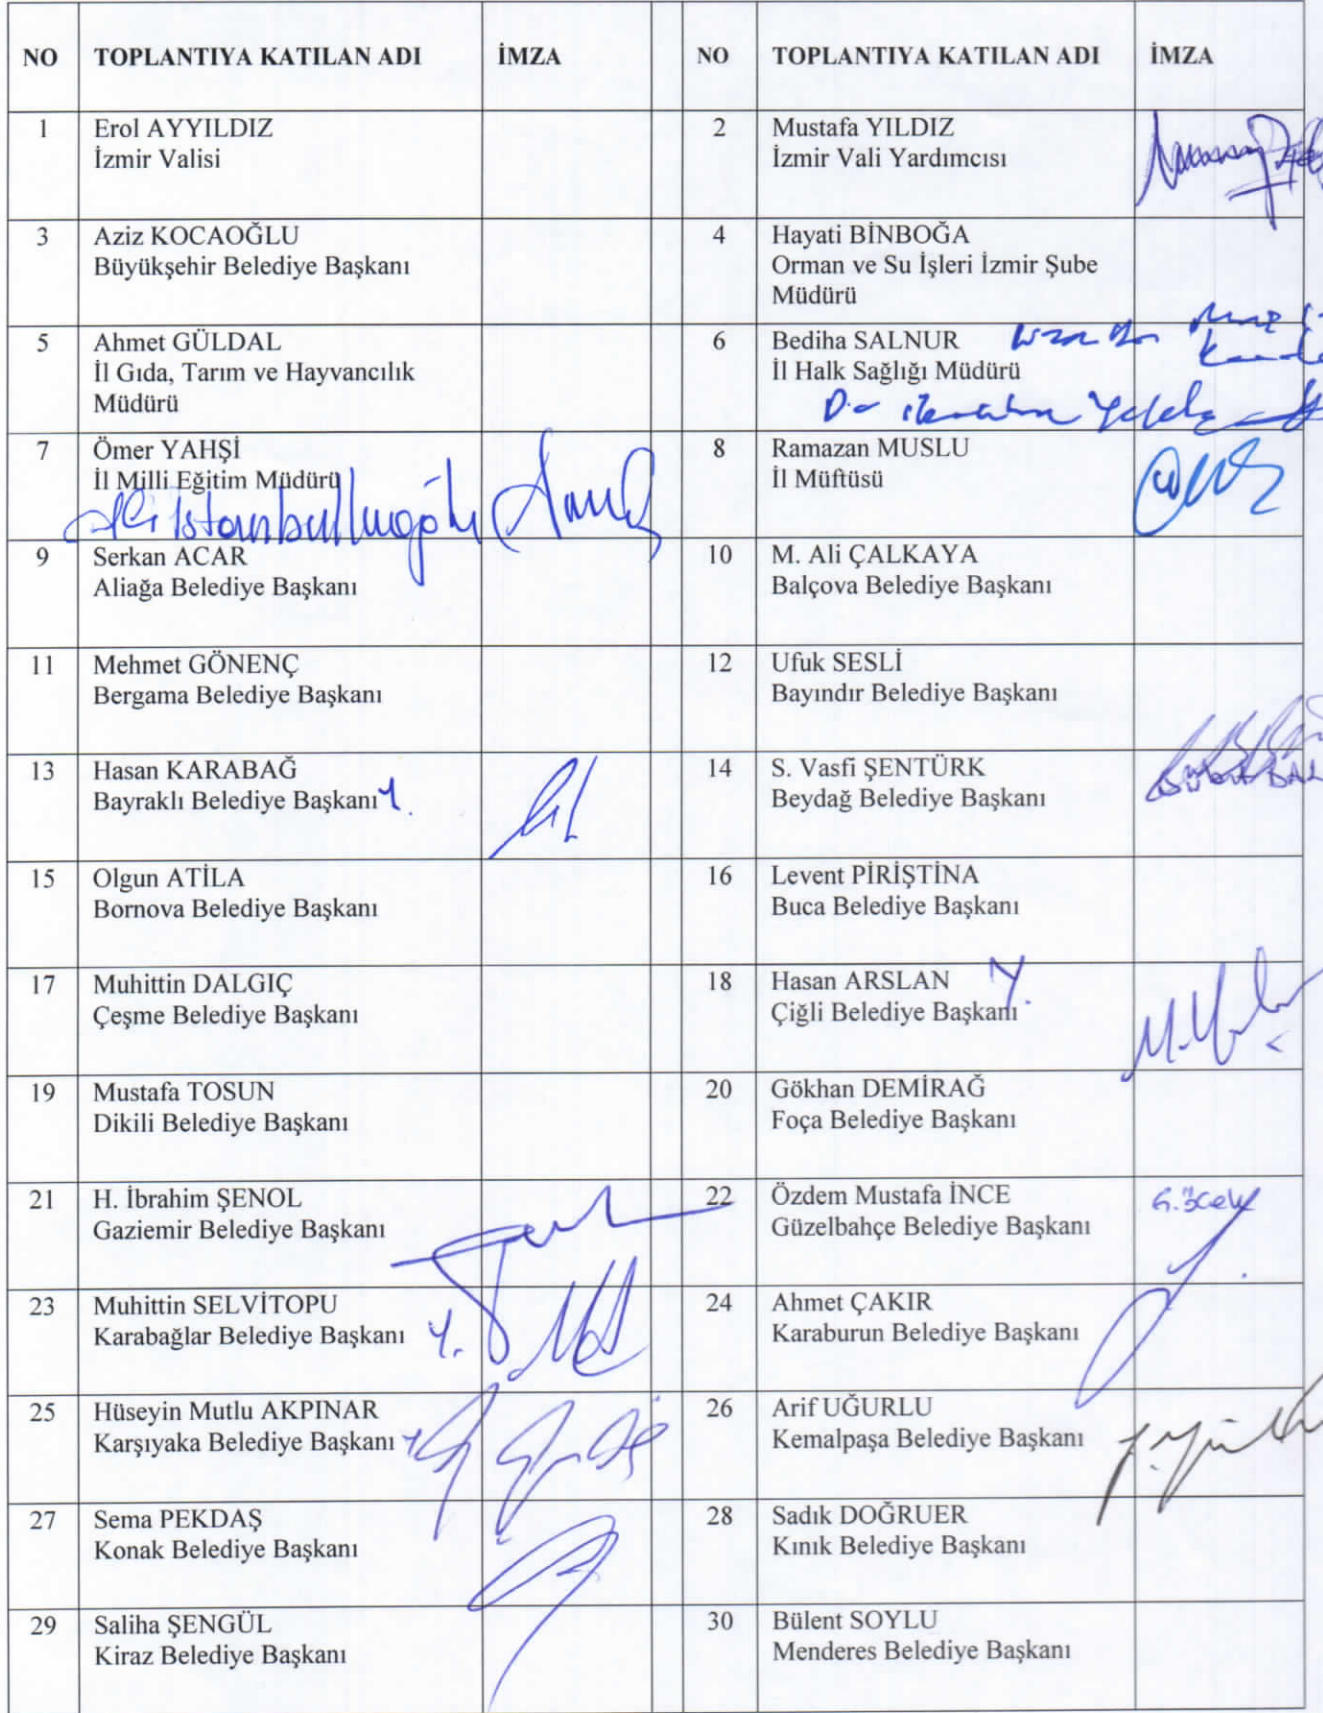 NO TOPLANTIYA KATILAN ADI İMZA NO TOPLANTIYA KATILAN ADI İMZA
1 Erol AYYILDIZ
İzmir Valisi
2 Mustafa YILDIZ
İzmir Vali Yardımcısı
3 Aziz KOCAOĞLU
Büyükşehir Belediye Başkanı
4 Hayati BİNBOĞA
Orman ve Su İşleri İzmir Şube
Müdürü
5 Ahmet GÜLDAL
İl Gıda, Tarım ve Hayvancılık
Müdürü
6 Bediha SALNUR
İl Halk Sağlığı Müdürü
7 Ömer YAHŞİ
İl Milli Eğitim Müdürü
Ali istanbulluoğlu
8 Ramazan MUSLU
İl Müftüsü
9 Serkan ACAR
Aliağa Belediye Başkanı
10 M. Ali ÇALKAYA
Balçova Belediye Başkanı
11 Mehmet GÖNENÇ
Bergama Belediye Başkanı
12 Ufuk SESLİ
Bayındır Belediye Başkanı
13 Hasan KARABAĞ
Bayraklı Belediye Başkanı Y.
14 S. Vasfi ŞENTÜRK
Beydağ Belediye Başkanı
15 Olgun ATİLA
Bornova Belediye Başkanı
16 Levent PİRİŞTİNA
Buca Belediye Başkanı
17 Muhittin DALGIÇ
Çeşme Belediye Başkanı
18 Hasan ARSLAN Y.
Çiğli Belediye Başkanı
19 Mustafa TOSUN
Dikili Belediye Başkanı
20 Gökhan DEMİRAĞ
Foça Belediye Başkanı
21 H. İbrahim ŞENOL
Gaziemir Belediye Başkanı
22 Özdem Mustafa İNCE
Güzelbahçe Belediye Başkanı
23 Muhittin SELVİTOPU
Karabağlar Belediye Başkanı Y.
24 Ahmet ÇAKIR
Karaburun Belediye Başkanı
25 Hüseyin Mutlu AKPINAR
Karşıyaka Belediye Başkanı
26 Arif UĞURLU
Kemalpaşa Belediye Başkanı
27 Sema PEKDAŞ
Konak Belediye Başkanı
28 Sadık DOĞRUER
Kınık Belediye Başkanı
29 Saliha ŞENGÜL
Kiraz Belediye Başkanı
30 Bülent SOYLU
Menderes Belediye Başkanı